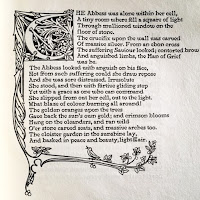 THE Abbess was alone within her cell,
A tiny room where fell a square of light
Through mullioned window on the
floor of stone.
The crucifix upon the wall was carved
Of massive silver. From an ebon cross
The suffering Saviour looked; contorted brow
And anguished limbs, the Man of Grief
was he.
The Abbess looked with anguish on his face,
Not from such suffering could she draw repose
And she was sore distressed. Irresolute
She stood, and then with furtive gliding step
Yet with a grace as one who can command
She slipped from out her cell, out to the light.
What blaze of colour burning all around!
The golden oranges upon the trees
Gave back the sun's own gold; and crimson blooms
Hung on the oleanders, and ran wild
O'er stone carved seats, and massive arches too.
The cloister garden in the sunshine lay,
And basked in peace and beauty, light